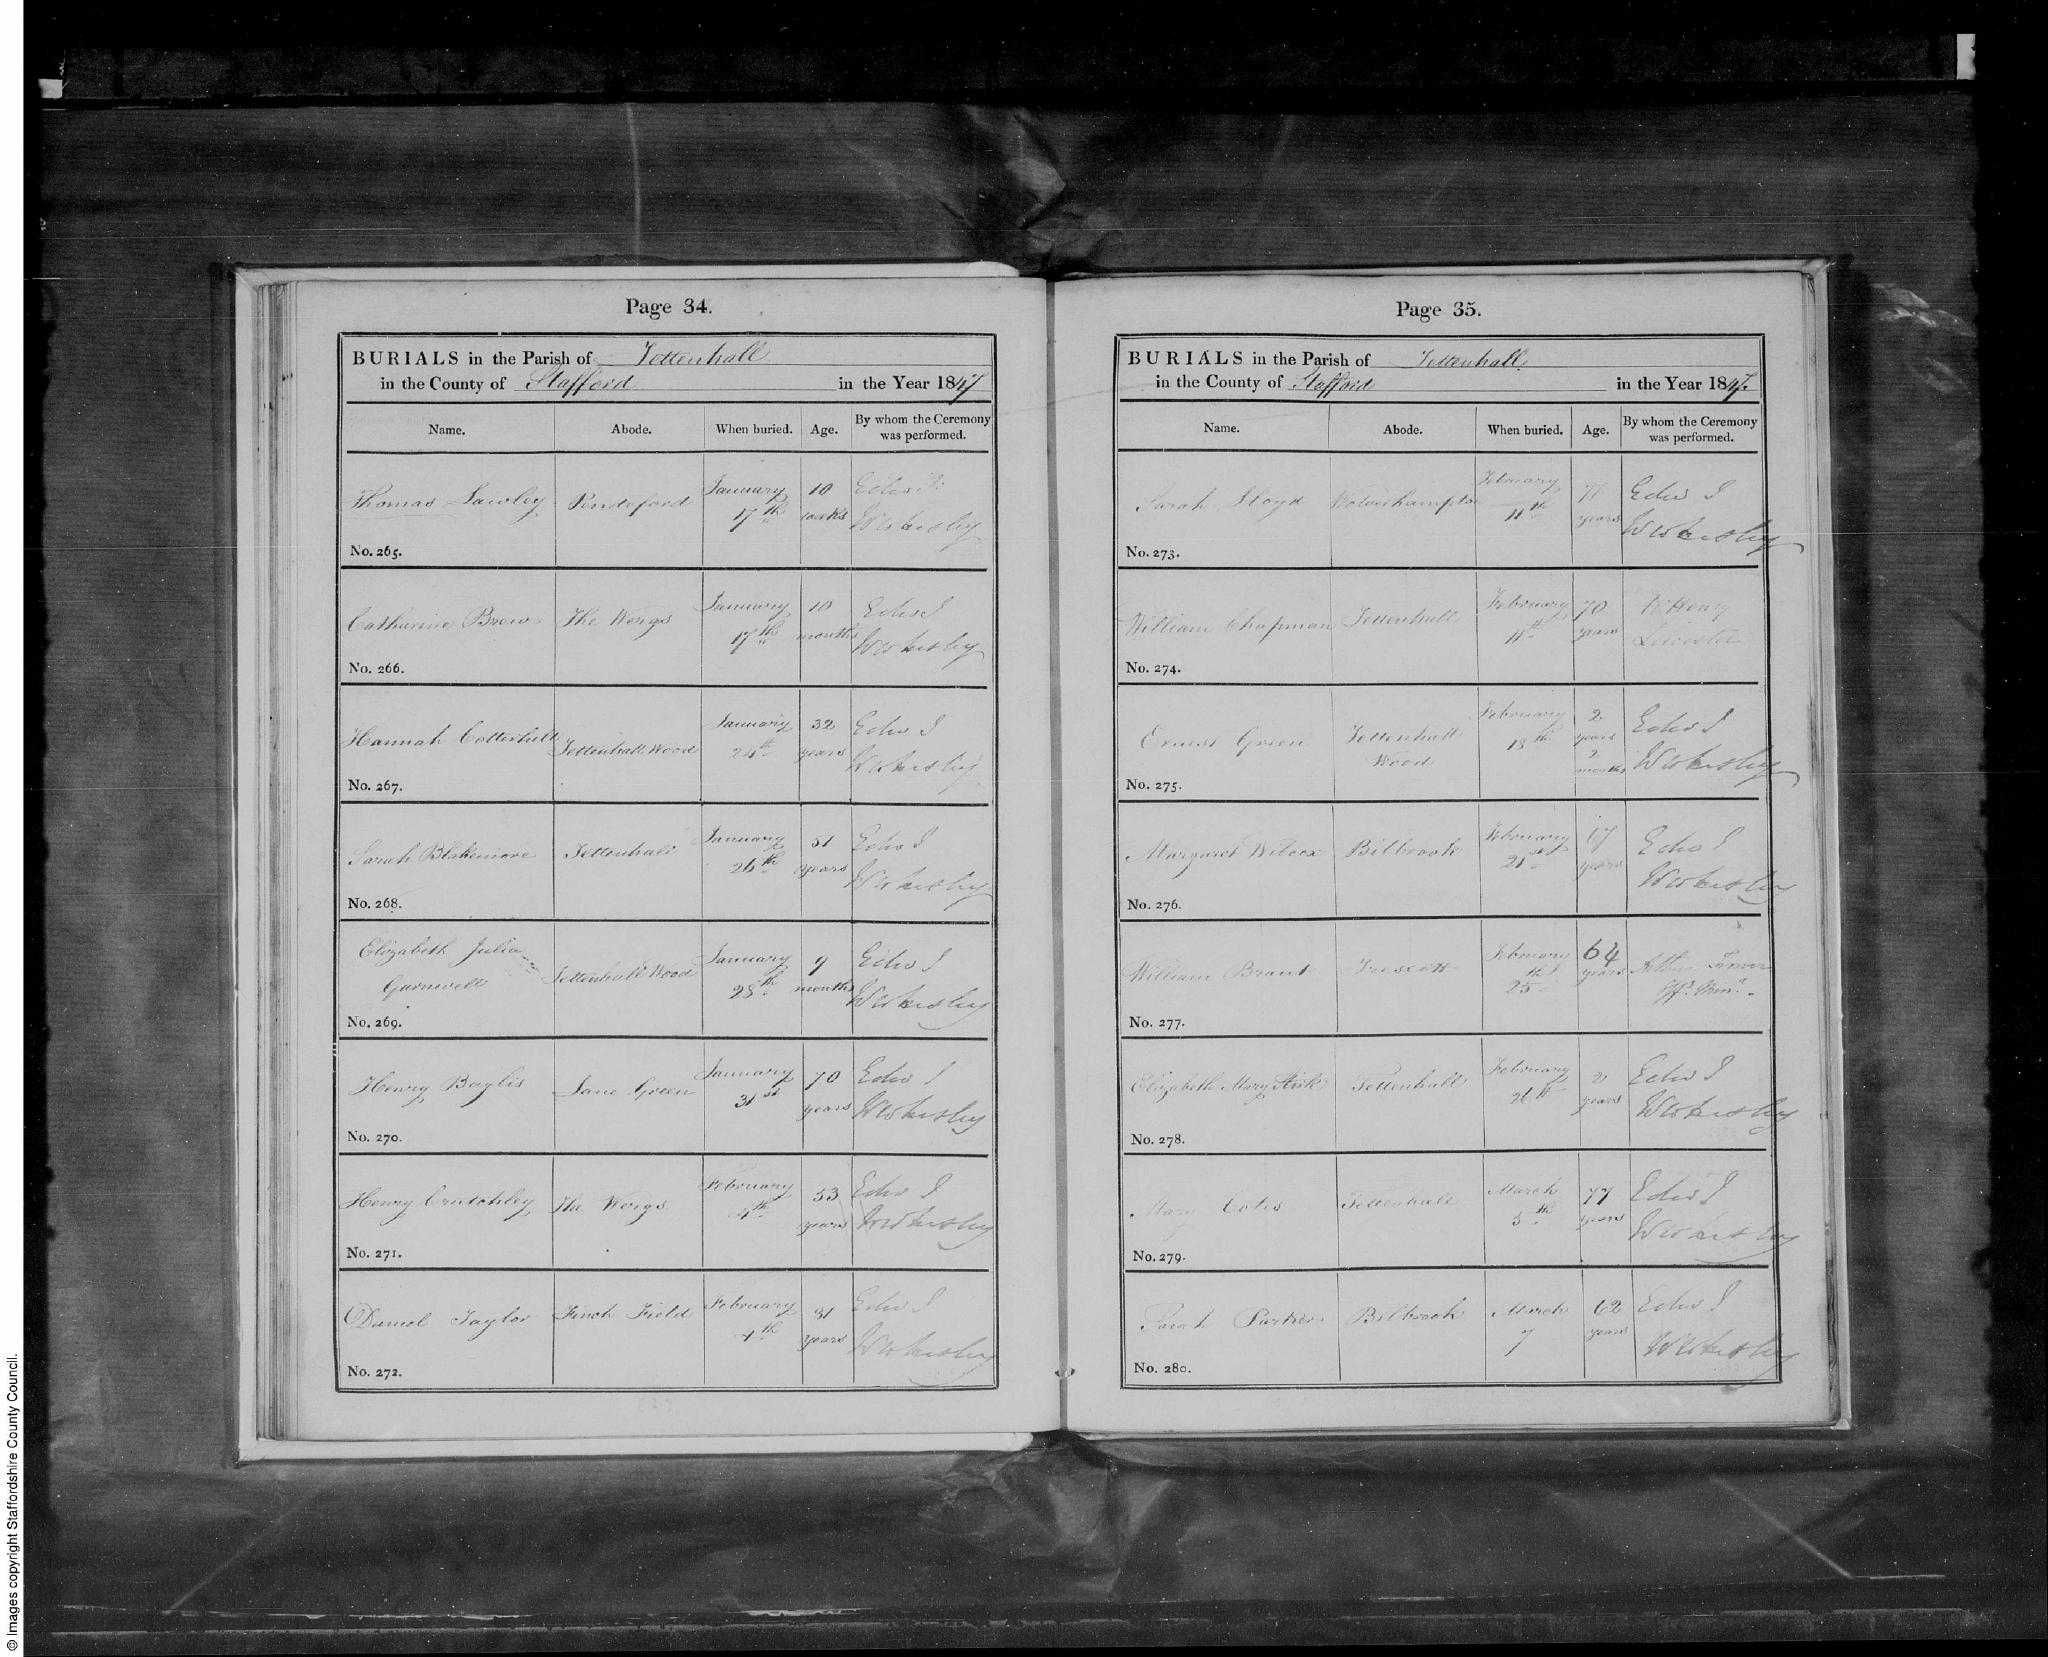 Page 34.
BURIALS in the Parish of Tettenhall
in the County of Stafford in the Year 1847
Name. Abode. When buried. Age. By whom the Ceremony
was performed.
Thomas Lawley Pendeford January 17th 10 weeks Edw J Wokersley
No. 265.
Catharine Brew The Wergs January 17th 10 months Edw J
No. 266.
Hannah Cotterhill Tettenhall Wood January 24th 32 years Edw J
No. 267.
Sarah Blakemore Tettenhall January 26th 51 years Edw J
No. 268.
Elizabeth Julia
Garnwell Tettenhall Wood January 28th 9 months Edw J
No. 269.
Henry Baylis Lane Green January 31st 70 years Edw J
No. 270.
Henry Crutchley The Wergs February 4th 53 years Edw J
No. 271.
Daniel Taylor Finch Field February 4th 31 years Edw J
No. 272.
Page 35.
BURIALS in the Parish of Tettenhall
in the County of Stafford in the Year 1847.
Name. Abode. When buried. Age. By whom the Ceremony
was performed.
Sarah Lloyd Wolverhampton February 11th 77 years Edw J
No. 273.
William Chapman Tettenhall February 11th 70 years Henry
No. 274.
Ernest Green Tettenhall
Wood February 18th 2 years 2 months Edw J
No. 275.
Margaret Wilcox Bilbrook February 21st 67 years Edw J
No. 276.
William Brant Trescott February 25th 64 years Arthur
Offg. Minr.
No. 277.
Elizabeth Mary Tettenhall February 26th 2 years Edw J
No. 278.
Mary Coles Tettenhall March 5th 77 years Edw J
No. 279.
Sarah Parkes Bilbrook March 7 62 years Edw J
No. 280.
© Images copyright Staffordshire County Council.